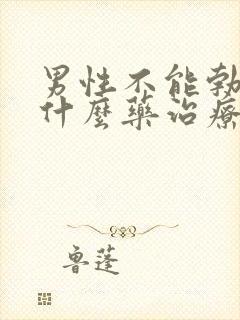 男性不能勃
什麼藥治療
魯蓬